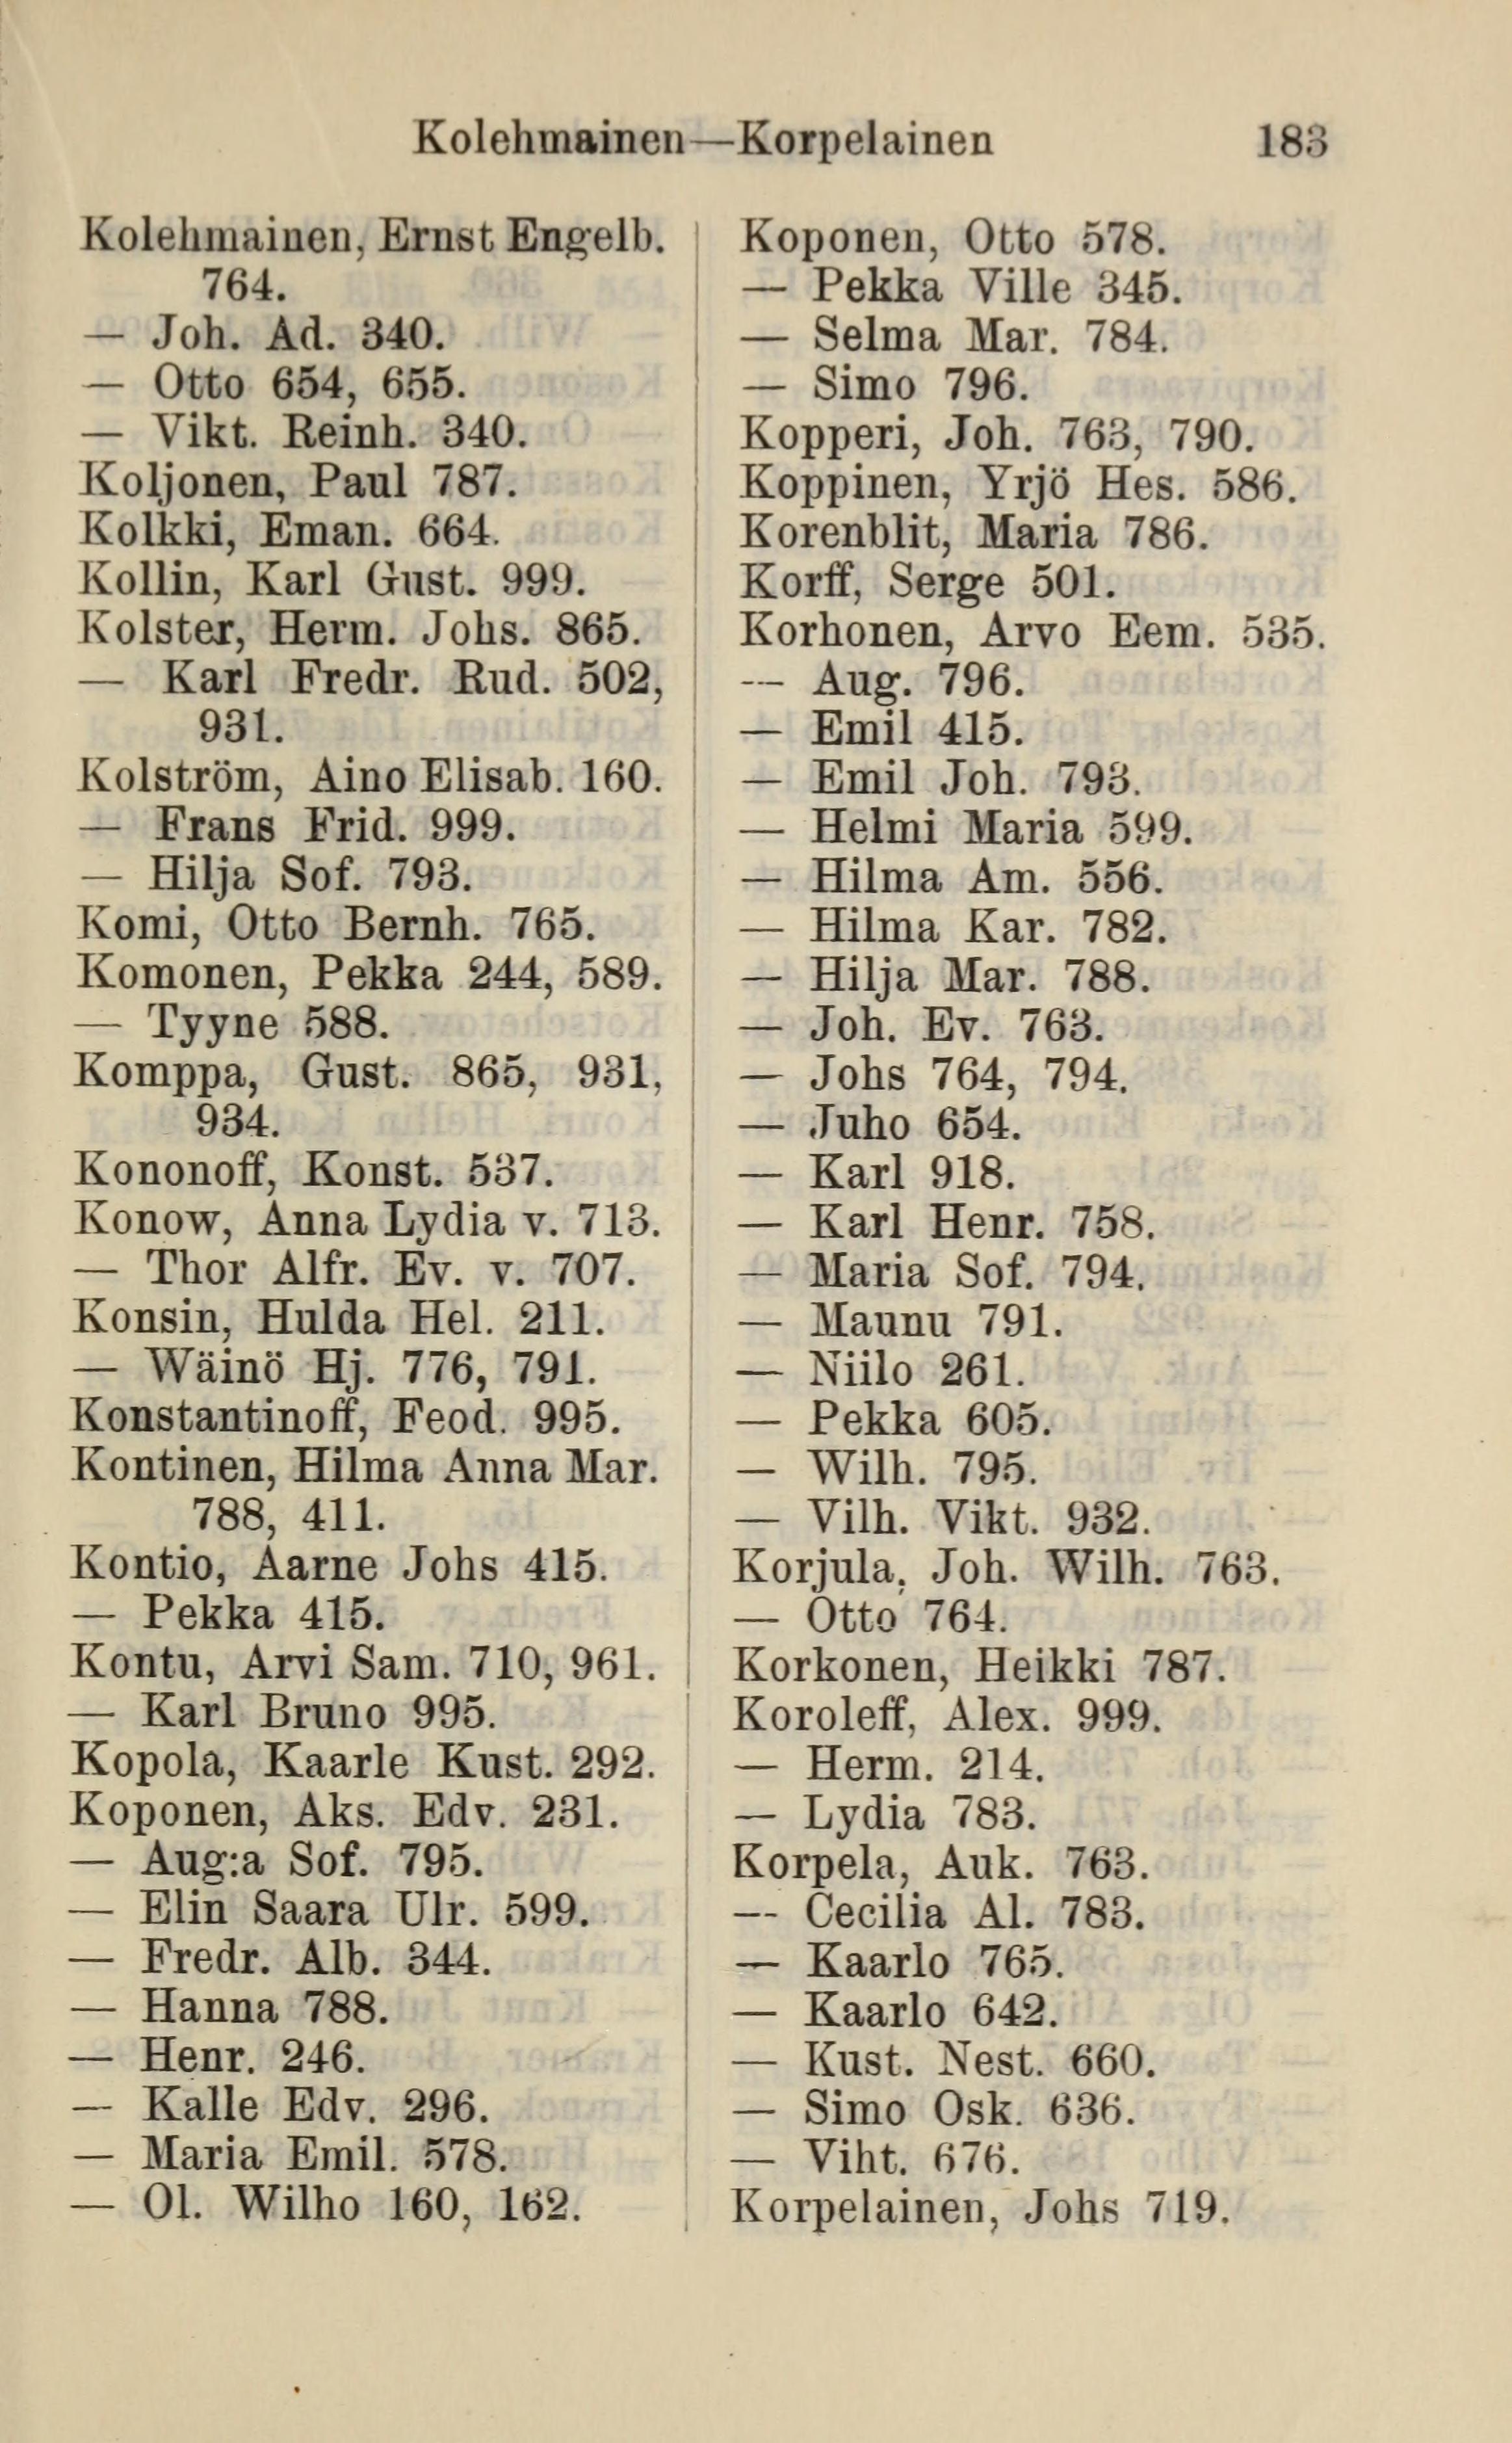 Kolehmainen—Korpelainen 183
Kolehmainen, Ernst Engelb.
764.
— Joh. Ad. 340.
— Otto 654, 655.
— Vikt. Reinh. 340.
Koljonen, Paul 787.
Kolkki, Eman. 664.
Kollin, Karl Gust. 999.
Kolster, Herm. Johs. 865.
— Karl Fredr. Rud. 502,
931.
Kolström, Aino Elisab. 160.
— Frans Frid. 999.
— Hilja Sof. 793.
Komi, Otto Bernh. 765.
Komonen, Pekka 244, 589.
— Tyyne 588.
Komppa, Gust. 865, 931,
934.
Kononoff, Konst. 537.
Konow, Anna Lydia v. 713.
— Thor Alfr. Ev. v. 707.
Konsin, Hulda Hel. 211.
— Wäinö Hj. 776, 791.
Konstantinoff, Feod. 995.
Kontinen, Hilma Anna Mar.
788, 411.
Kontio, Aarne Johs 415.
— Pekka 415.
Kontu, Arvi Sam. 710, 961.
— Karl Bruno 995.
Kopola, Kaarle Kust. 292.
Koponen, Aks. Edv. 231.
— Aug:a Sof. 795.
— Elin Saara Ulr. 599.
— Fredr. Alb. 344.
— Hanna 788.
— Henr. 246.
— Kalle Edv. 296.
— Maria Emil. 578.
— Ol. Wilho 160, 162.
Koponen, Otto 578.
— Pekka Ville 345.
— Selma Mar. 784.
— Simo 796.
Kopperi, Joh. 763, 790.
Koppinen, Yrjö Hes. 586.
Korenblit, Maria 786.
Korff, Serge 501.
Korhonen, Arvo Eem. 535.
— Aug. 796.
— Emil 415.
— Emil Joh. 793.
— Helmi Maria 599.
— Hilma Am. 556.
— Hilma Kar. 782.
— Hilja Mar. 788.
— Joh. Ev. 763.
— Johs 764, 794.
— Juho 654.
— Karl 918.
— Karl Henr. 758.
— Maria Sof. 794.
— Maunu 791.
— Niilo 261.
— Pekka 605.
— Wilh. 795.
— Vilh. Vikt. 932.
Korjula, Joh. Wilh. 763.
— Otto 764.
Korkonen, Heikki 787.
Koroleff, Alex. 999.
— Herm. 214.
— Lydia 783.
Korpela, Auk. 763.
— Cecilia Al. 783.
— Kaarlo 765.
— Kaarlo 642.
— Kust. Nest. 660.
— Simo Osk. 636.
— Viht. 676.
Korpelainen, Johs 719.